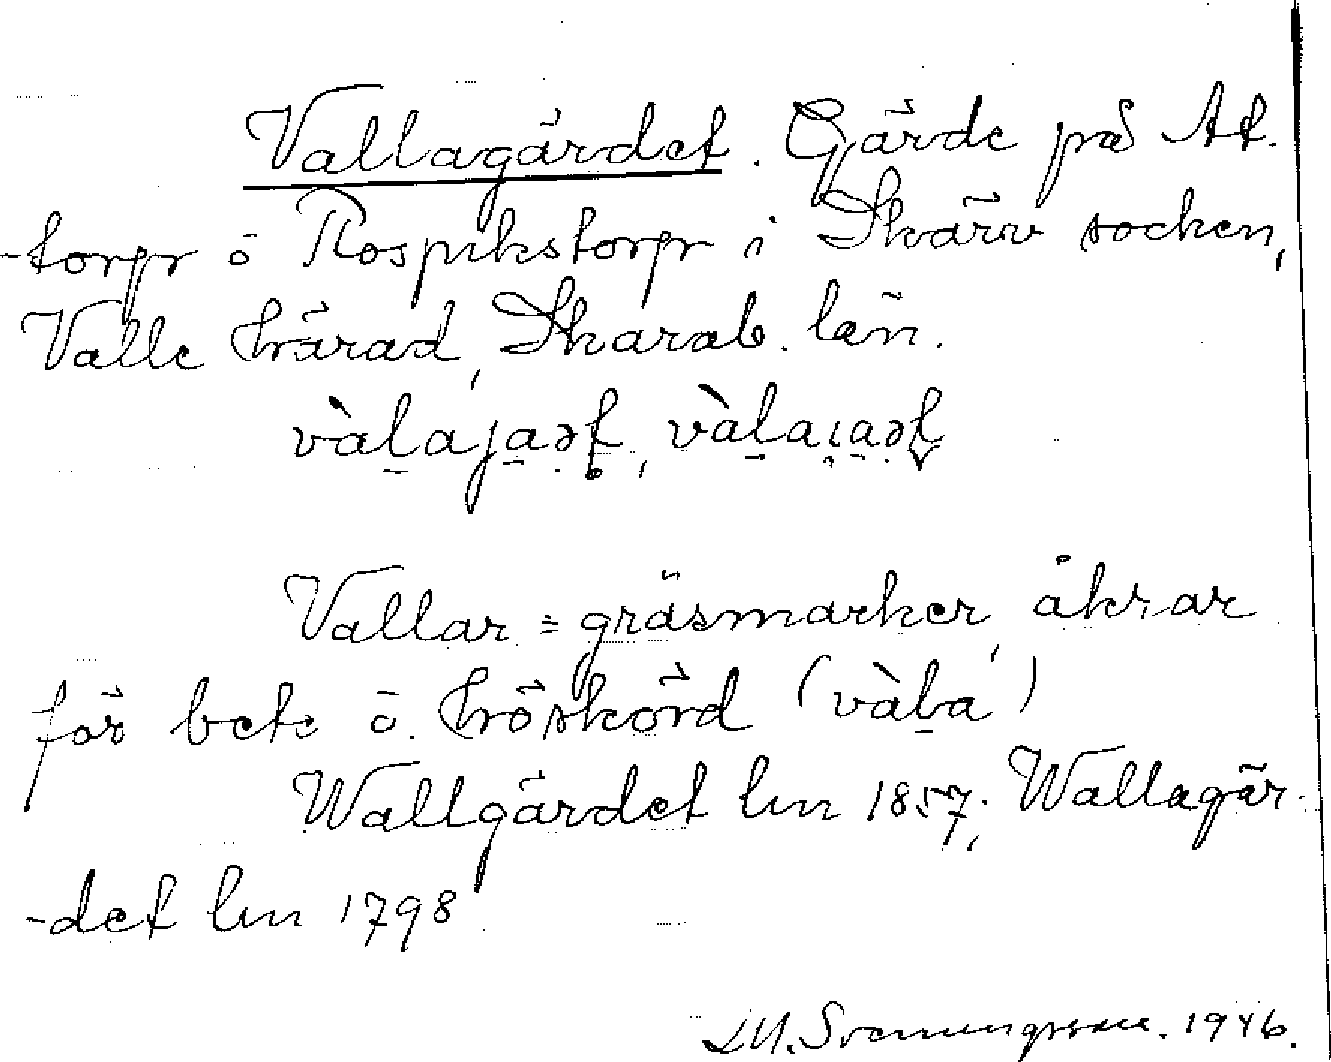 Vallagärdet. Gärde på At-
-torp o Rospikstorp i Skärv socken,
Valle härad, Skarab. län.
Vallar = gräsmarker, åkrar
för bete o. höskörd (vàla)
Wallgärdet lm 1857; Wallagär-
-det lm 1798
1946.